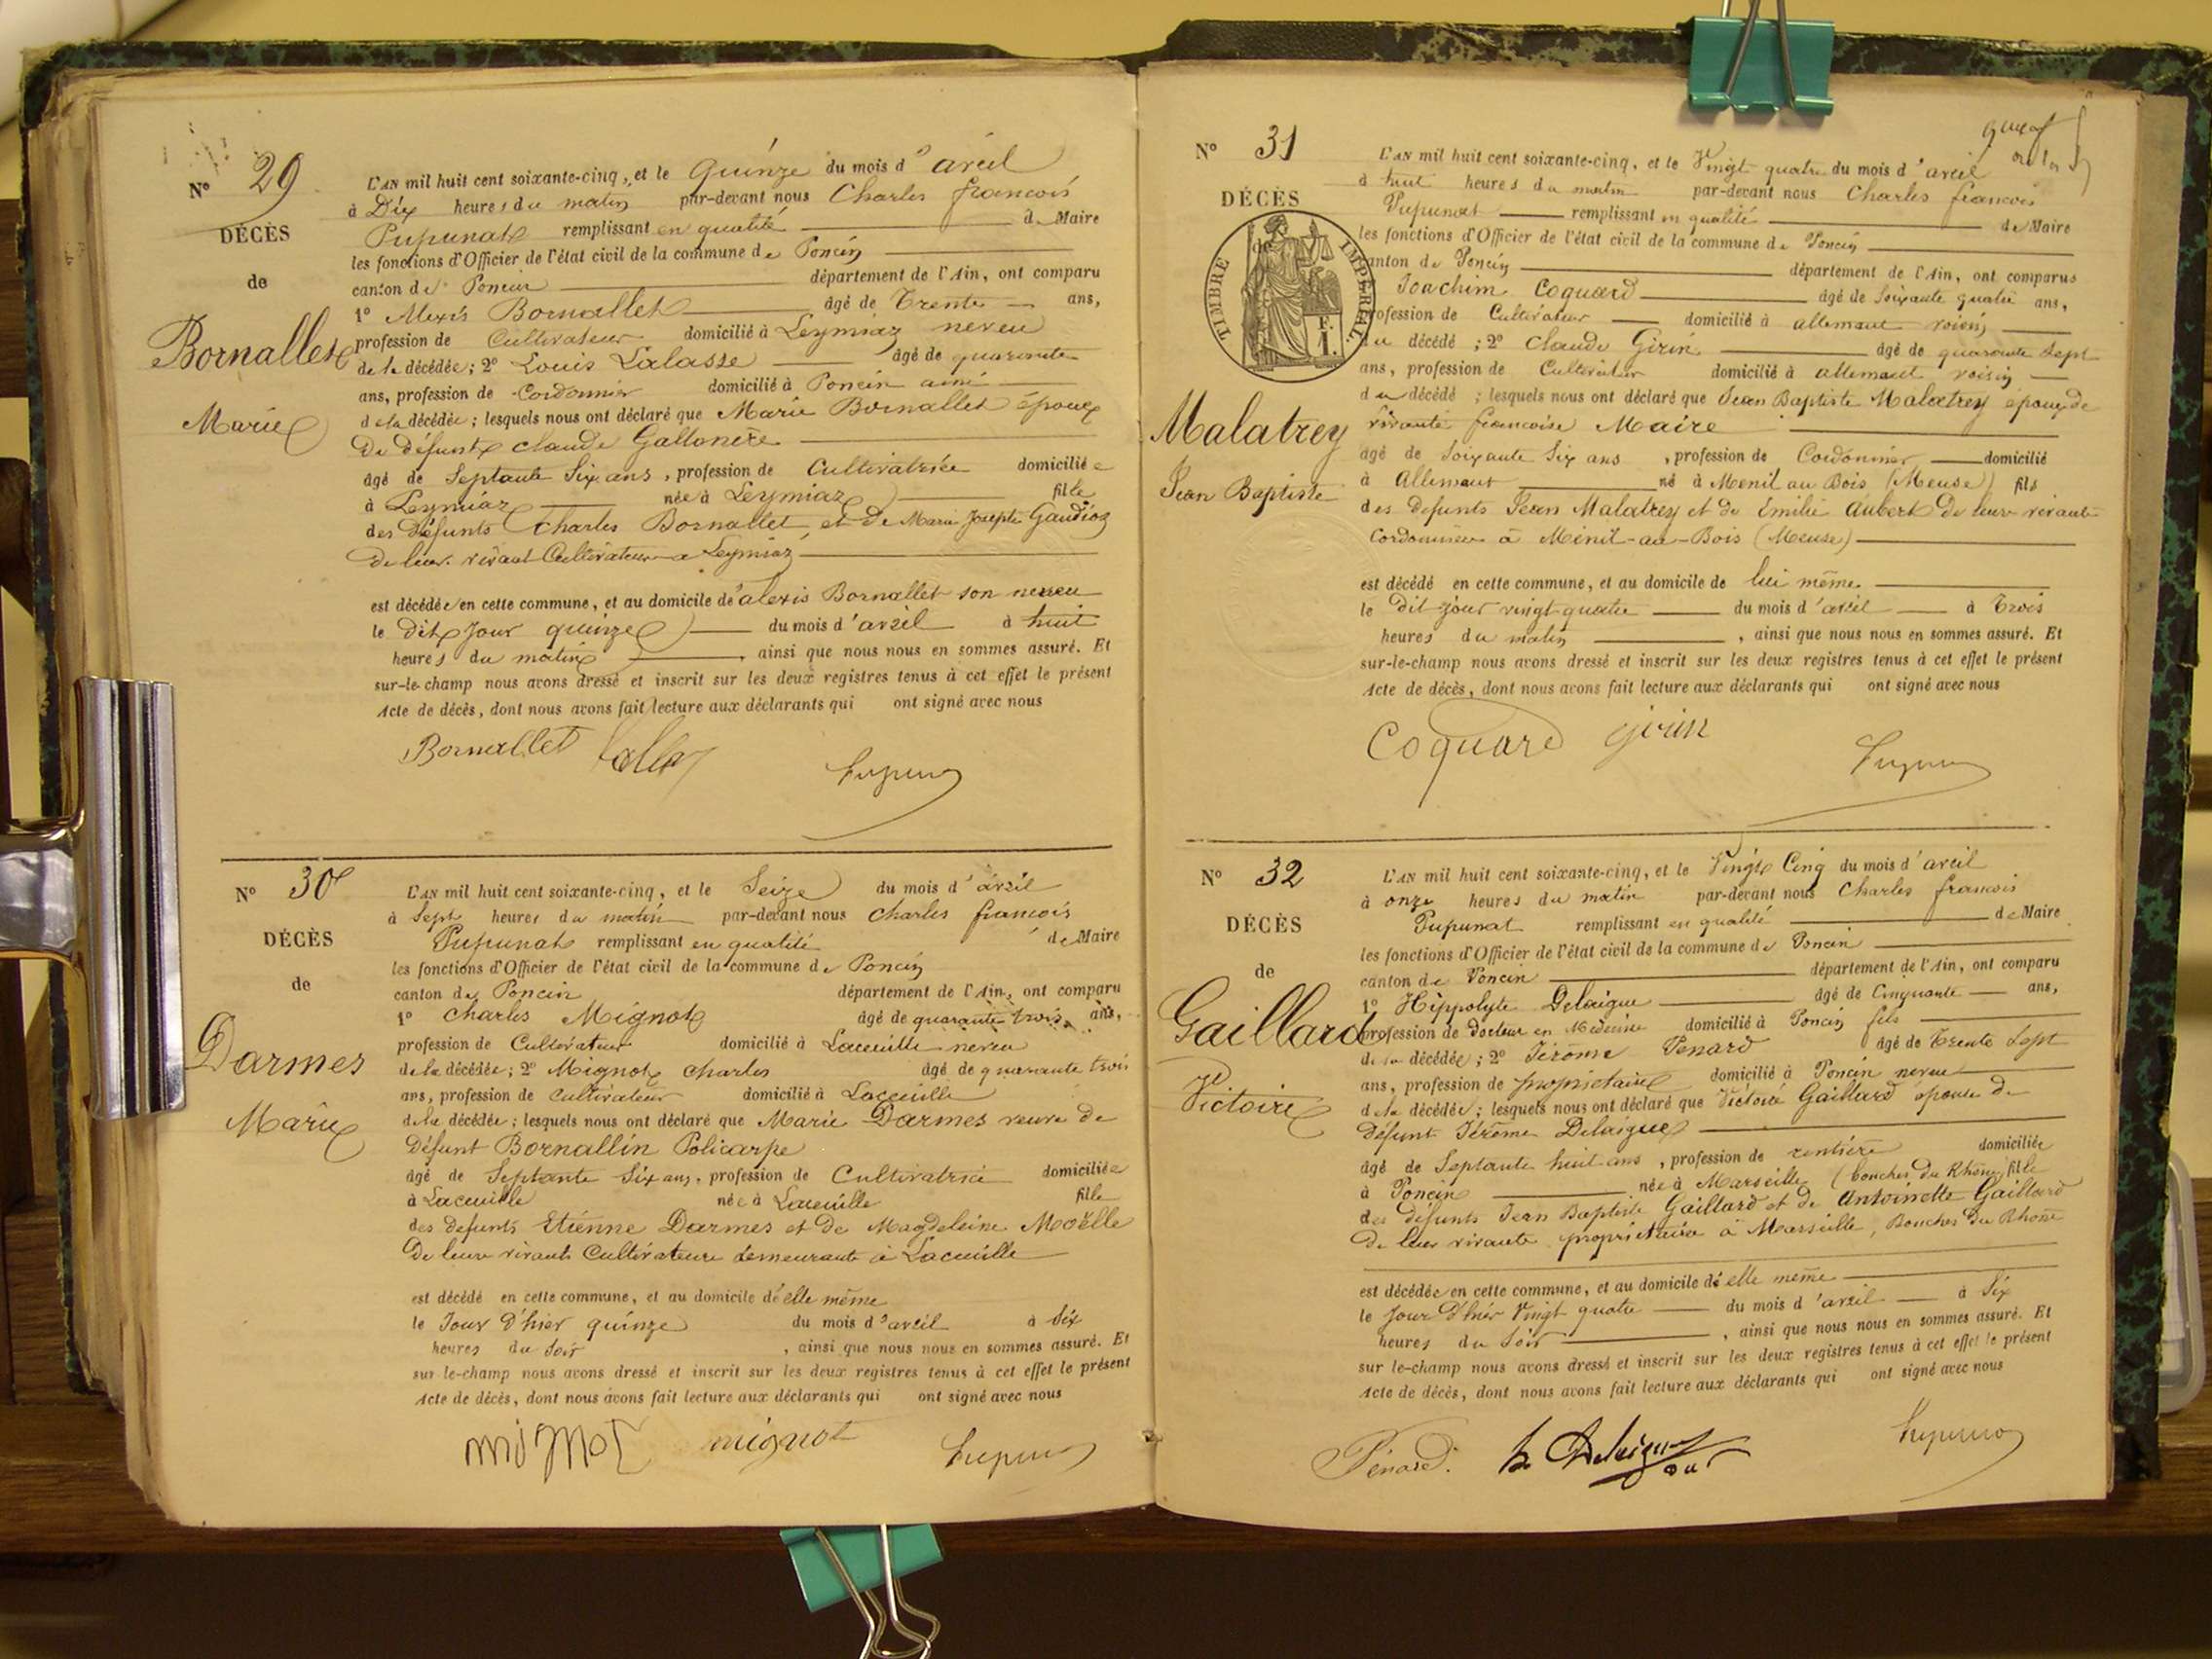 N° 29
DÉCÈS
de
Bornallet
Marie
L'AN mil huit cent soixante-cinq, et le Quinze du mois d'avril
à Dix heures du matin par-devant nous Charles françois
Pupunat remplissant en qualité de Maire
les fonctions d'Officier de l'état civil de la commune de Poncin
canton de Poncin département de l'Ain, ont comparu
1° Alexis Bornallet âgé de Trente ans,
profession de Cultivateur domicilié à Leymiaz neveu
de la décédée; 2° Louis Lalasse âgé de quarante
ans, profession de Cordonnier domicilié à Poncin ami
de la décédée; lesquels nous ont déclaré que Marie Bornallet épouse
De défunt claude Gallonère
âgé de Septante Six ans, profession de Cultivatrice domiciliée
à Leymiaz née à Leymiaz fille
des Défunts Charles Bornallet et de Marie Josephte Gaudioz
de leur vivant Cultivateurs a Leymiaz
est décédée en cette commune, et au domicile de alexis Bornallet son neveu
le dit Jour quinze du mois d'avril à huit
heures du matin, ainsi que nous nous en sommes assuré. Et
sur-le-champ nous avons dressé et inscrit sur les deux registres tenus à cet effet le présent
Acte de décès, dont nous avons fait lecture aux déclarants qui ont signé avec nous
Bornallet
N° 30
DÉCÈS
de
Darmes
Marie
L'AN mil huit cent soixante-cinq, et le Seize du mois d'avril
à Sept heures du matin par-devant nous Charles françois
Pupunat remplissant en qualité de Maire
les fonctions d'Officier de l'état civil de la commune de Poncin
canton de Poncin département de l'Ain, ont comparu
1° Charles Mignot âgé de quarante trois ans,
profession de Cultivateur domicilié à Lacueille neveu
de la décédée; 2° Mignot Charles âgé de quarante trois
ans, profession de Cultivateur domicilié à Lacueille
de la décédée; lesquels nous ont déclaré que Marie Darmes veuve de
Défunt Bornallin Policarpe
âgé de Septante Six ans, profession de Cultivatrice domiciliée
à Lacueille née à Lacueille fille
des defunts Etienne Darmes et de Magdeleine Moëlle
De leur vivant Cultivateurs demeurants à Lacueille
est décédé en cette commune, et au domicile d'elle même
le Jour d'hier quinze du mois d'avril à Six
heures du Soir, ainsi que nous nous en sommes assuré. Et
sur-le-champ nous avons dressé et inscrit sur les deux registres tenus à cet effet le présent
Acte de décès, dont nous avons fait lecture aux déclarants qui ont signé avec nous
mignot mignot
N° 31
DÉCÈS
de
TIMBRE IMPÉRIAL
F.
1.
Malatrey
Jean Baptiste
L'AN mil huit cent soixante-cinq, et le Vingt quatre du mois d'avril
à huit heures du matin par-devant nous Charles françois
Pupunat remplissant en qualité de Maire
les fonctions d'Officier de l'état civil de la commune de Poncin
canton de Poncin département de l'Ain, ont comparus
Joachim Coquard âgé de Soixante quatre ans,
profession de Cultivateur domicilié à allemant voisin
du décédé; 2° claude Girin âgé de quarante sept
ans, profession de Cultivateur domicilié à allemant voisin
du décédé; lesquels nous ont déclaré que Jean Baptiste Malatrey époux de
vivante francoise Maire
âgé de Soixante Six ans, profession de Cordonnier domicilié
à Allemant né à Menil au Bois (Meuse) fils
des defunts Jean Malatrey et de Emilie Aubert De leur vivants
Cordonnier à Menil-au-Bois (Meuse)
est décédé en cette commune, et au domicile de lui même
le dit jour vingt quatre du mois d'avril à Trois
heures du matin, ainsi que nous nous en sommes assuré. Et
sur-le-champ nous avons dressé et inscrit sur les deux registres tenus à cet effet le présent
Acte de décès, dont nous avons fait lecture aux déclarants qui ont signé avec nous
Coquard girin
N° 32
DÉCÈS
de
Gaillard
Victoire
L'AN mil huit cent soixante-cinq, et le Vingt Cinq du mois d'avril
à onze heures du matin par-devant nous Charles francois
Pupunat remplissant en qualité de Maire
les fonctions d'Officier de l'état civil de la commune de Poncin
canton de Poncin département de l'Ain, ont comparu
1° Hippolyte Delaigue âgé de Cinquante ans,
profession de Docteur en Médecine domicilié à Poncin fils
de la décédée; 2° Jérôme Penard âgé de Trente Sept
ans, profession de propriétaire domicilié à Poncin neveu
de la décédée; lesquels nous ont déclaré que Victoire Gaillard épouse de
défunt Jérôme Delaigue
âgé de Septante huit ans, profession de rentière domiciliée
à Poncin née à Marseille (bouches du Rhône) fille
des défunts Jean Baptiste Gaillard et de Antoinette Gaillard
de leur vivants propriétaires à Marseille, Bouches du Rhône
est décédée en cette commune, et au domicile d'elle même
le Jour d'hier Vingt quatre du mois d'avril à Six
heures du Soir, ainsi que nous nous en sommes assuré. Et
sur le-champ nous avons dressé et inscrit sur les deux registres tenus à cet effet le présent
Acte de décès, dont nous avons fait lecture aux déclarants qui ont signé avec nous
Penard. h Delaigue